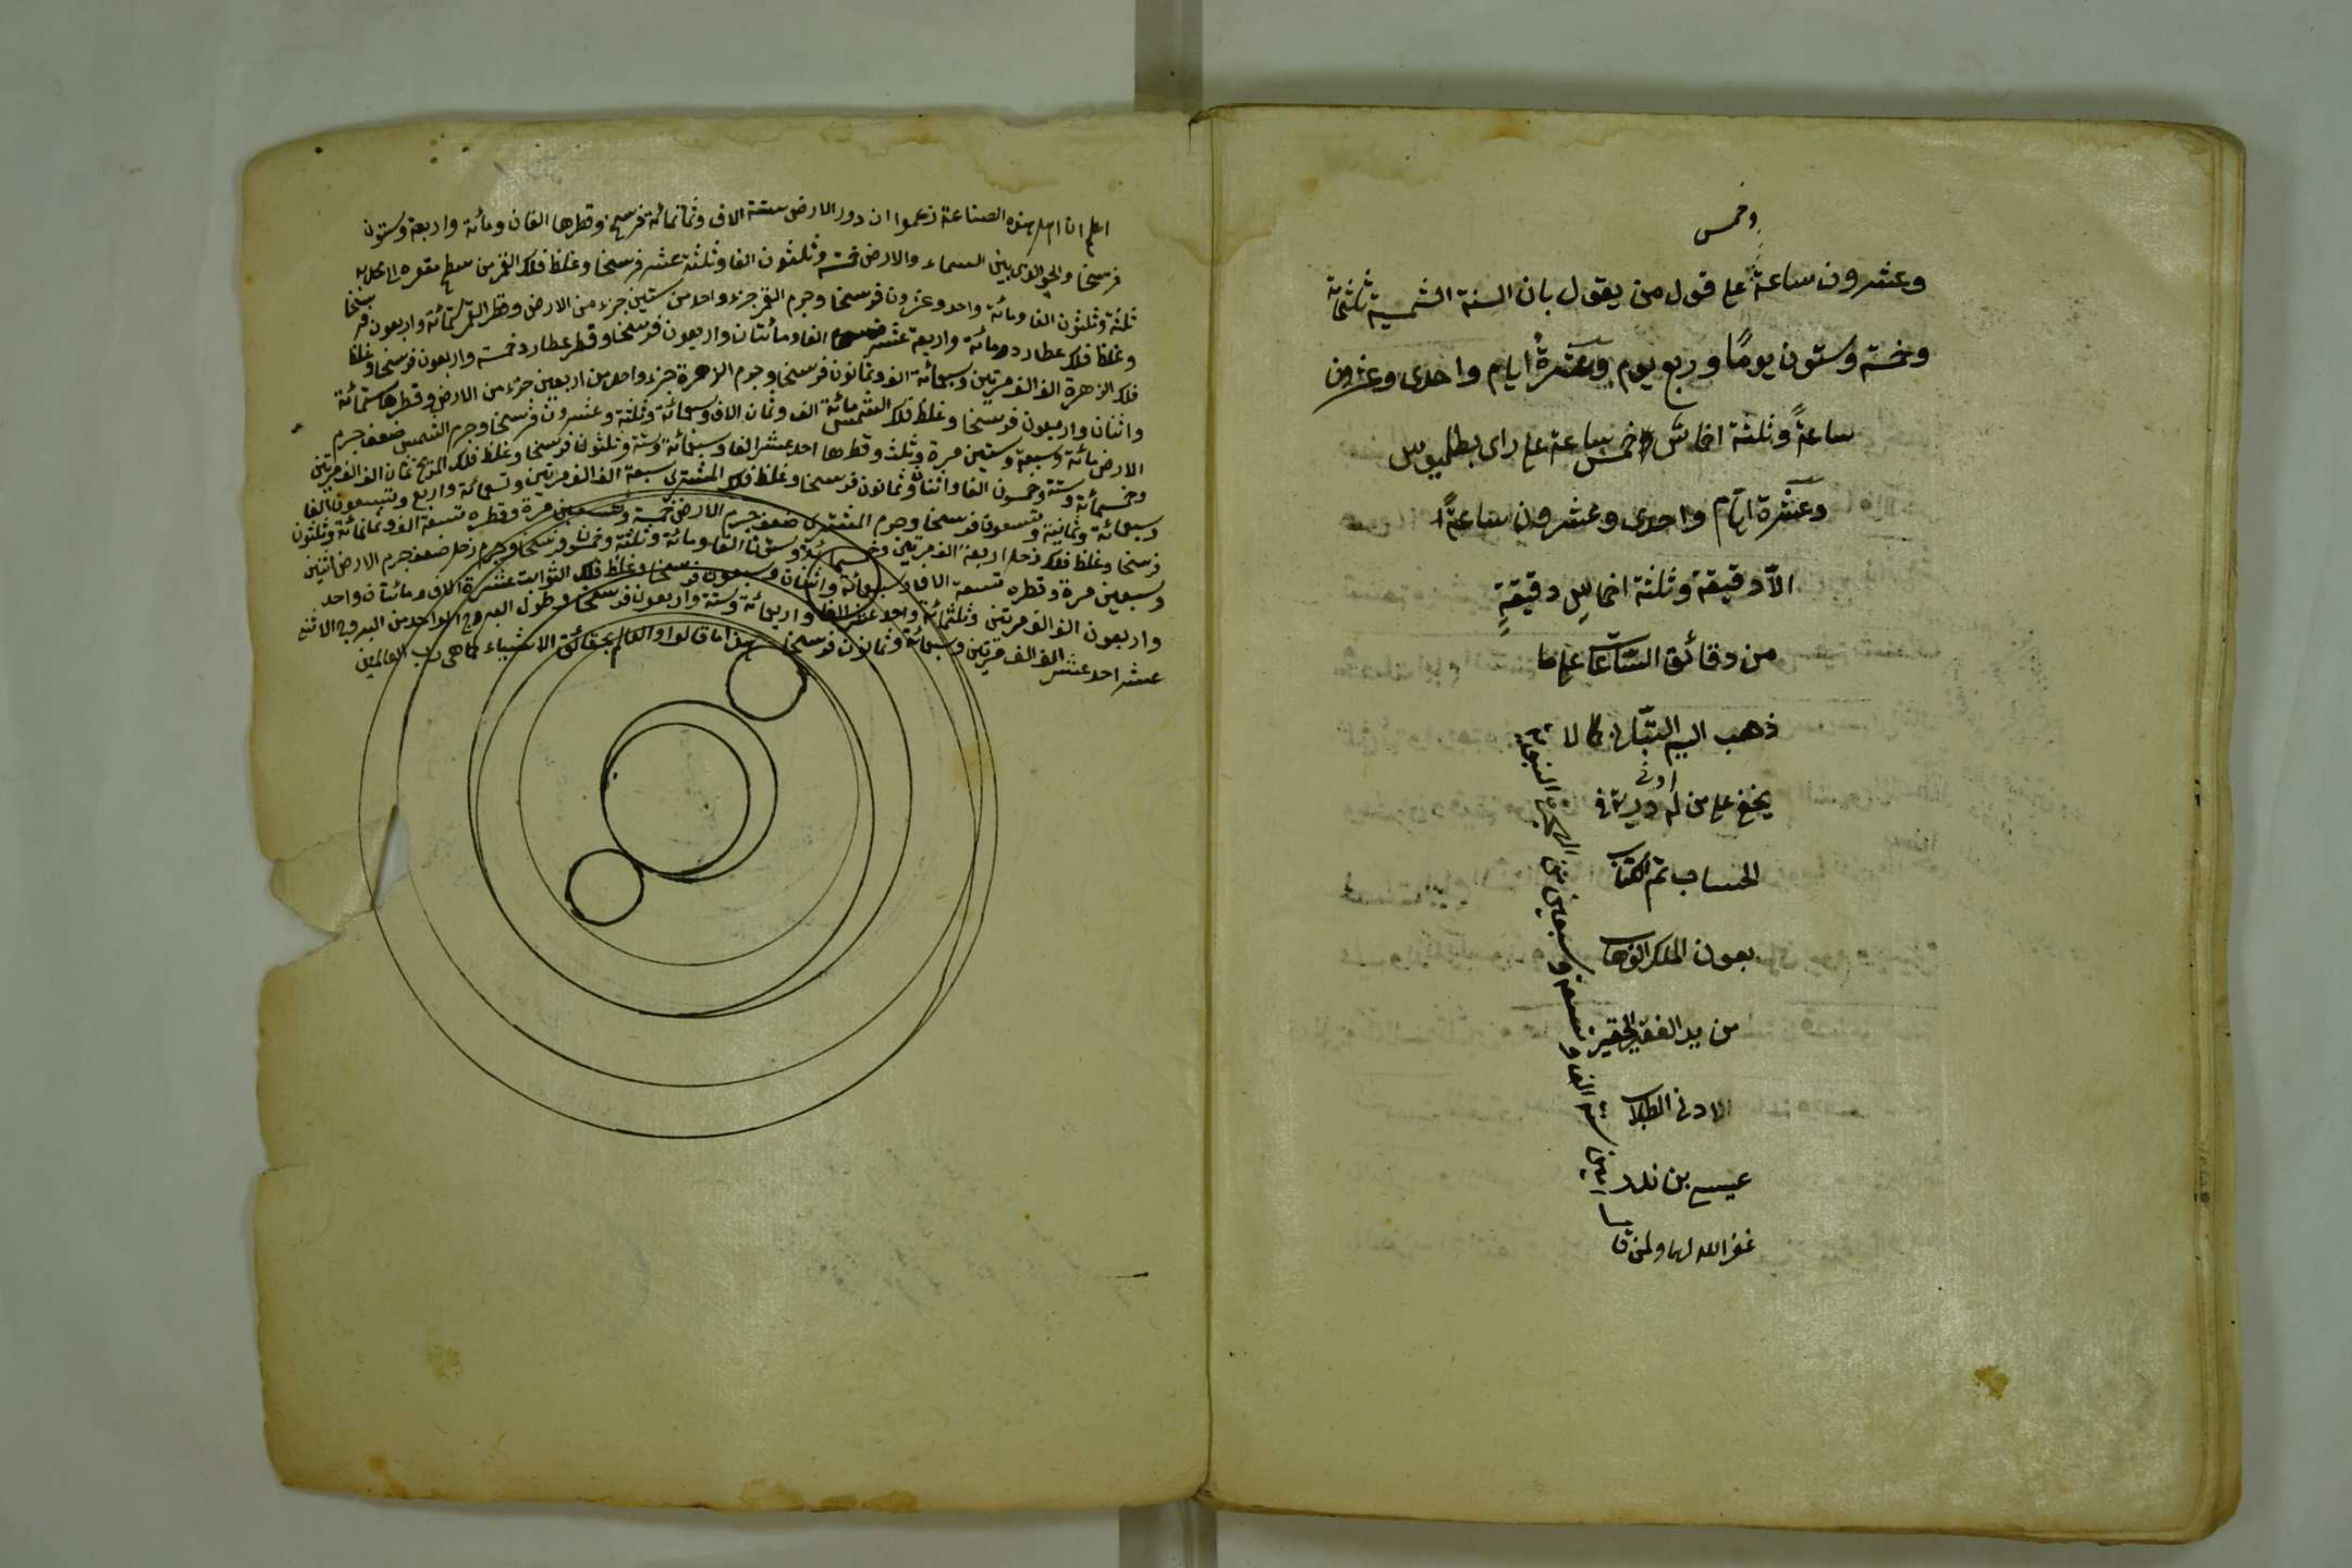 وخمس
وعشرون ساعة على قول من يقول بان السنة الشمسية ثلثمائة
وخمسة وستون يومًا وربع يوم وعشرةُ ايام واحدى وعشرون
ساعةً وثلثة اخماس وخمس ساعة على راى بطلميوس
وعشرة ايّام واحدى وعشرون ساعةً
الّا دقيقة وثلثة اخماسِ دقيقةٍ
من دقائق السّاعات على ما
ذهب اليه التبّانى كما لا
يخفى على من له ادنى دربة فى
الحساب تم الكتاب
بعون الملك الوهاب
من يد الفقير الحقير
الادنى الطلاب
عيسى بن
غفر الله لهما ولمن قال
امين سنة الف و وسبعين من الهجرة النبوية
اعلم ان اهل هذه الصناعة زعموا ان دور الارض ستة الاف وثمانمائة فرسخ وقطرها الفان ومائة واربعة وستون
فرسخا والجو الذى بين السماء والارض خمسة وثلثون الفا وثلثة عشر فرسخا وغلظ فلك القمر من سطح مقعره الى
ثلثة وثلثون الفا ومائة واحد وعشرون فرسخا وجرم القمر جزء واحد من ستين جزء من الارض وقطر القمر ستمائة واربعون فرسخا
وغلظ فلك عطارد ومائة واربعة عشر الفا ومائتان واربعون فرسخا وقطر عطارد خمسة واربعون فرسخا وغلظ
فلك الزهرة الف الف مرتين وسبعمائة الف وثمانون فرسخا وجرم الزهرة جزء واحد من اربعين جزء من الارض وقطرها ستمائة
واثنان واربعون فرسخا وغلظ فلك الشمس مائة الف وثمان الاف وسبعمائة وثلثة وعشرون فرسخا وجرم الشمس ضعف جرم
الارض مائة وسبعة وستين مرة وثلث وقطرها احد عشر الفا وسبعمائة وستة وثلثون فرسخا وغلظ فلك المريخ ثمان الف الف مرتين
وخمسمائة وستة وخمسون الفا واثنان وثمانون فرسخا وغلظ فلك المشترى سبعة الف الف مرتين وتسعمائة واربع وتسعون الفا
وسبعمائة وثمانية وتسعون فرسخا وجرم المشترى ضعف جرم الارض خمسة وتسعين مرة وقطره تسعة الف وثمانمائة وثلثون
فرسخا وغلظ فلك زحل اربعة الف مرتين وخمسمائة وستون الفا ومائة وثلثة وخمسون فرسخا وجرم زحل ضعف جرم الارض اثنين
وسبعين مرة وقطره تسعة الاف وسبعمائة واثنان وسبعون فرسخا وغلظ فلك الثوابت عشرة الاف ومائتان واحد
واربعون الف الف مرتين وثلثمائة واحد عشر الفا واربعمائة وستة واربعون فرسخا وطول البروج الواحد من البروج الاثنى
عشر احد عشر الف الف مرتين وسبعمائة وثمانون فرسخا هذا ما قالوا والعالم بحقائق الاشياء كما هى رب العالمين